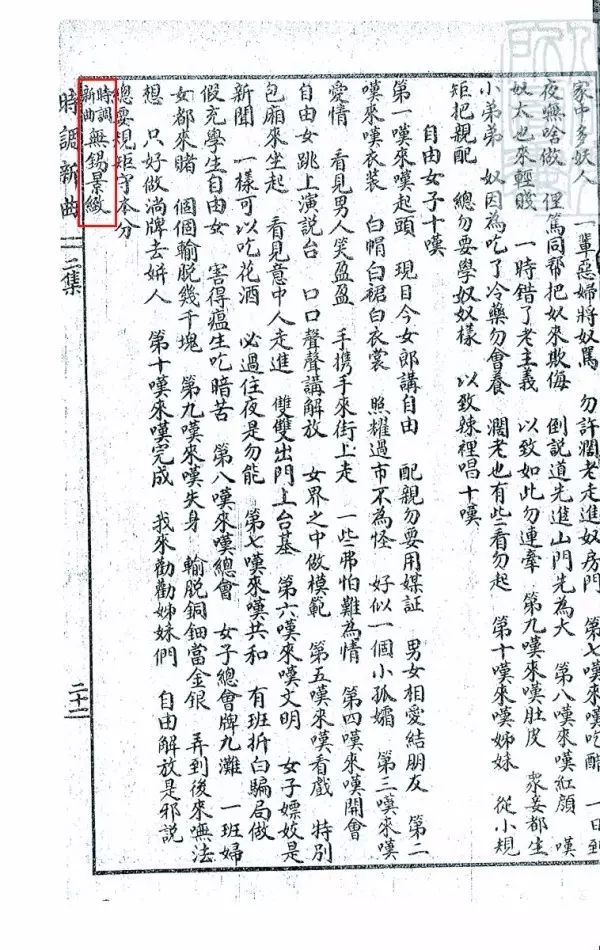 家中多妖人　一輩惡婦將奴罵　勿許濶老走進奴房門　第七嘆來嘆吃醋　一日到
夜嘸啥做　俚篤同帮把奴來欺侮　倒說道先進山門先為大　第八嘆來嘆紅顔　嘆
奴太也來輕賤　一時錯了老主義　以致如此勿連牽　第九嘆來嘆肚皮　家妾都生
小弟弟　奴因為吃了冷藥勿會養　濶老也有些看勿起　第十嘆來嘆姊妹　從小規
矩把親配　總勿要學奴奴樣　以致辣裡唱十嘆
自由女子十嘆
第一嘆來嘆起頭　現目今女郎講自由　配親勿要用媒証　男女相愛結朋友　第二
嘆來嘆衣裝　白帽白裙白衣裳　照耀過市不為怪　好似一個小孤孀　第三嘆來嘆
愛情　看見男人笑盈盈　手携手來街上走　一些弗怕難為情　第四嘆來嘆開會
自由女跳上演說台　口口聲聲講解放　女界之中做模範　第五嘆來嘆看戲　特別
包廂來坐起　看見意中人走進　雙雙出門上台基　第六嘆來嘆文明　女子嫖妓是
新聞　一樣可以吃花酒　必過住夜是勿能　第七嘆來嘆共和　有班拆白騙局做
假充學生自由女　害得瘟生吃暗苦　第八嘆來嘆總會　女子總會牌九灘　一班婦
女都來賭　個個輸脫幾千塊　第九嘆來嘆失身　輸脫銅鈿當金銀　弄到後來嘸法
想　只好做淌牌去姘人　第十嘆來嘆完成　我來勸勸姊妹們　自由解放是邪說
總要規矩守本分
時調新曲無錫景緻
時調新曲　二集　二十二